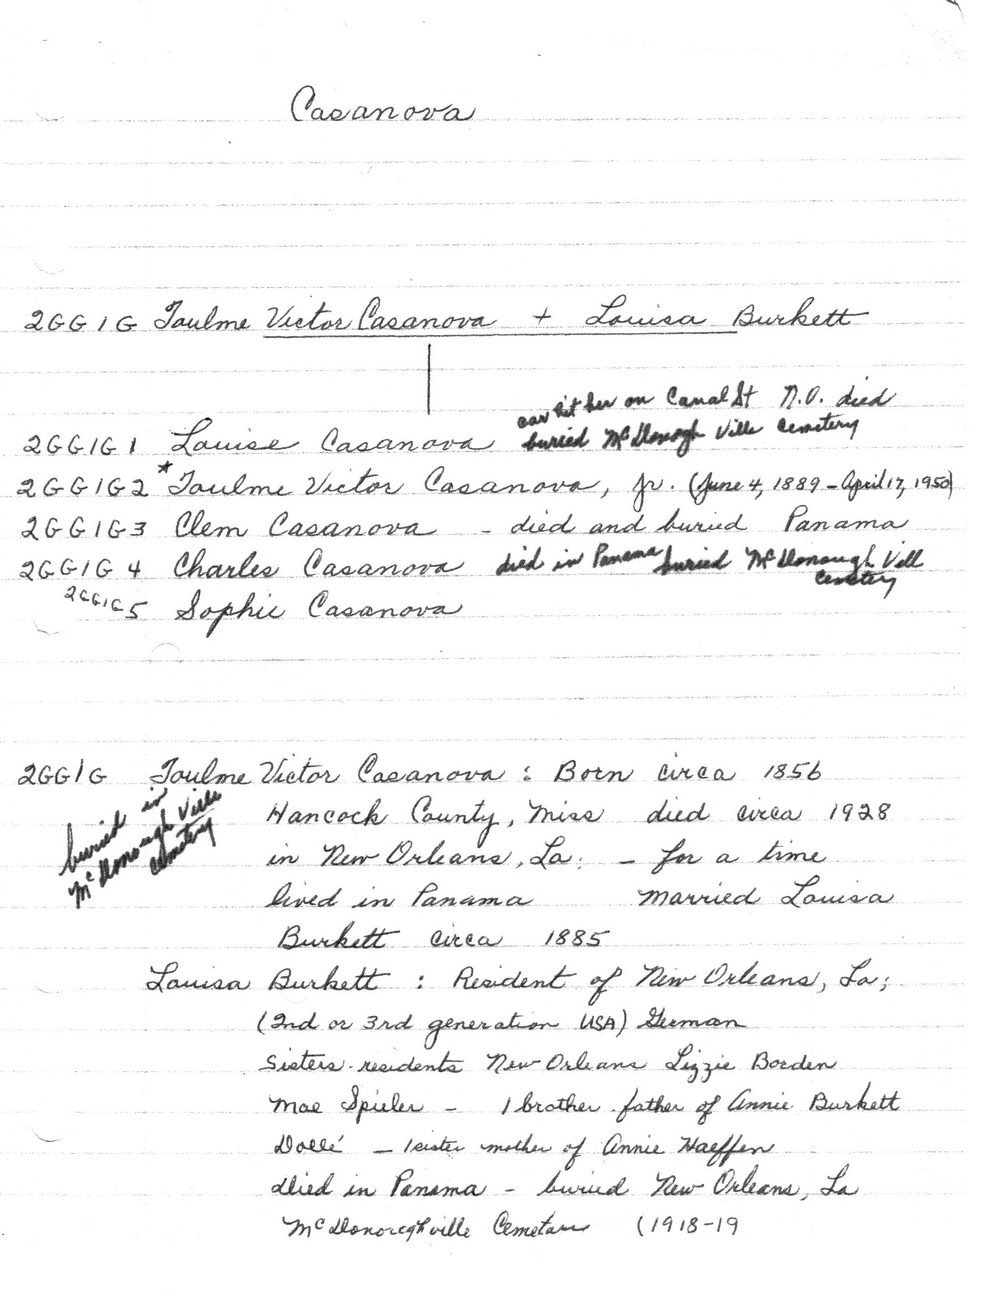 Casanova
2GG1G Toulme Victor Casanova + Louisa Burkett
car hit her on Canal St N.O. died
2GG1G1 Louise Casanova buried McDonogh Ville Cemetery
2GG1G2 * Toulme Victor Casanova, Jr. (June 4, 1889 - April 17, 1950)
2GG1G3 Clem Casanova - died and buried Panama
2GG1G4 Charles Casanova died in Panama buried McDonough Vill
Cemetery
2GG1G5 Sophie Casanova
2GG1G Toulme Victor Casanova : Born circa 1856
buried in
McDonough Ville
Cemetery
Hancock County, Miss died circa 1928
in New Orleans, La. - for a time
lived in Panama married Louisa
Burkett circa 1885
Louisa Burkett : Resident of New Orleans, La;
(2nd or 3rd generation USA) German
Sisters - residents New Orleans Lizzie Borden
Mae Spieler - 1 brother - father of Annie Burkett
- 1 sister mother of Annie Haeffen
died in Panama - buried New Orleans, La
McDonoughville (1918-19